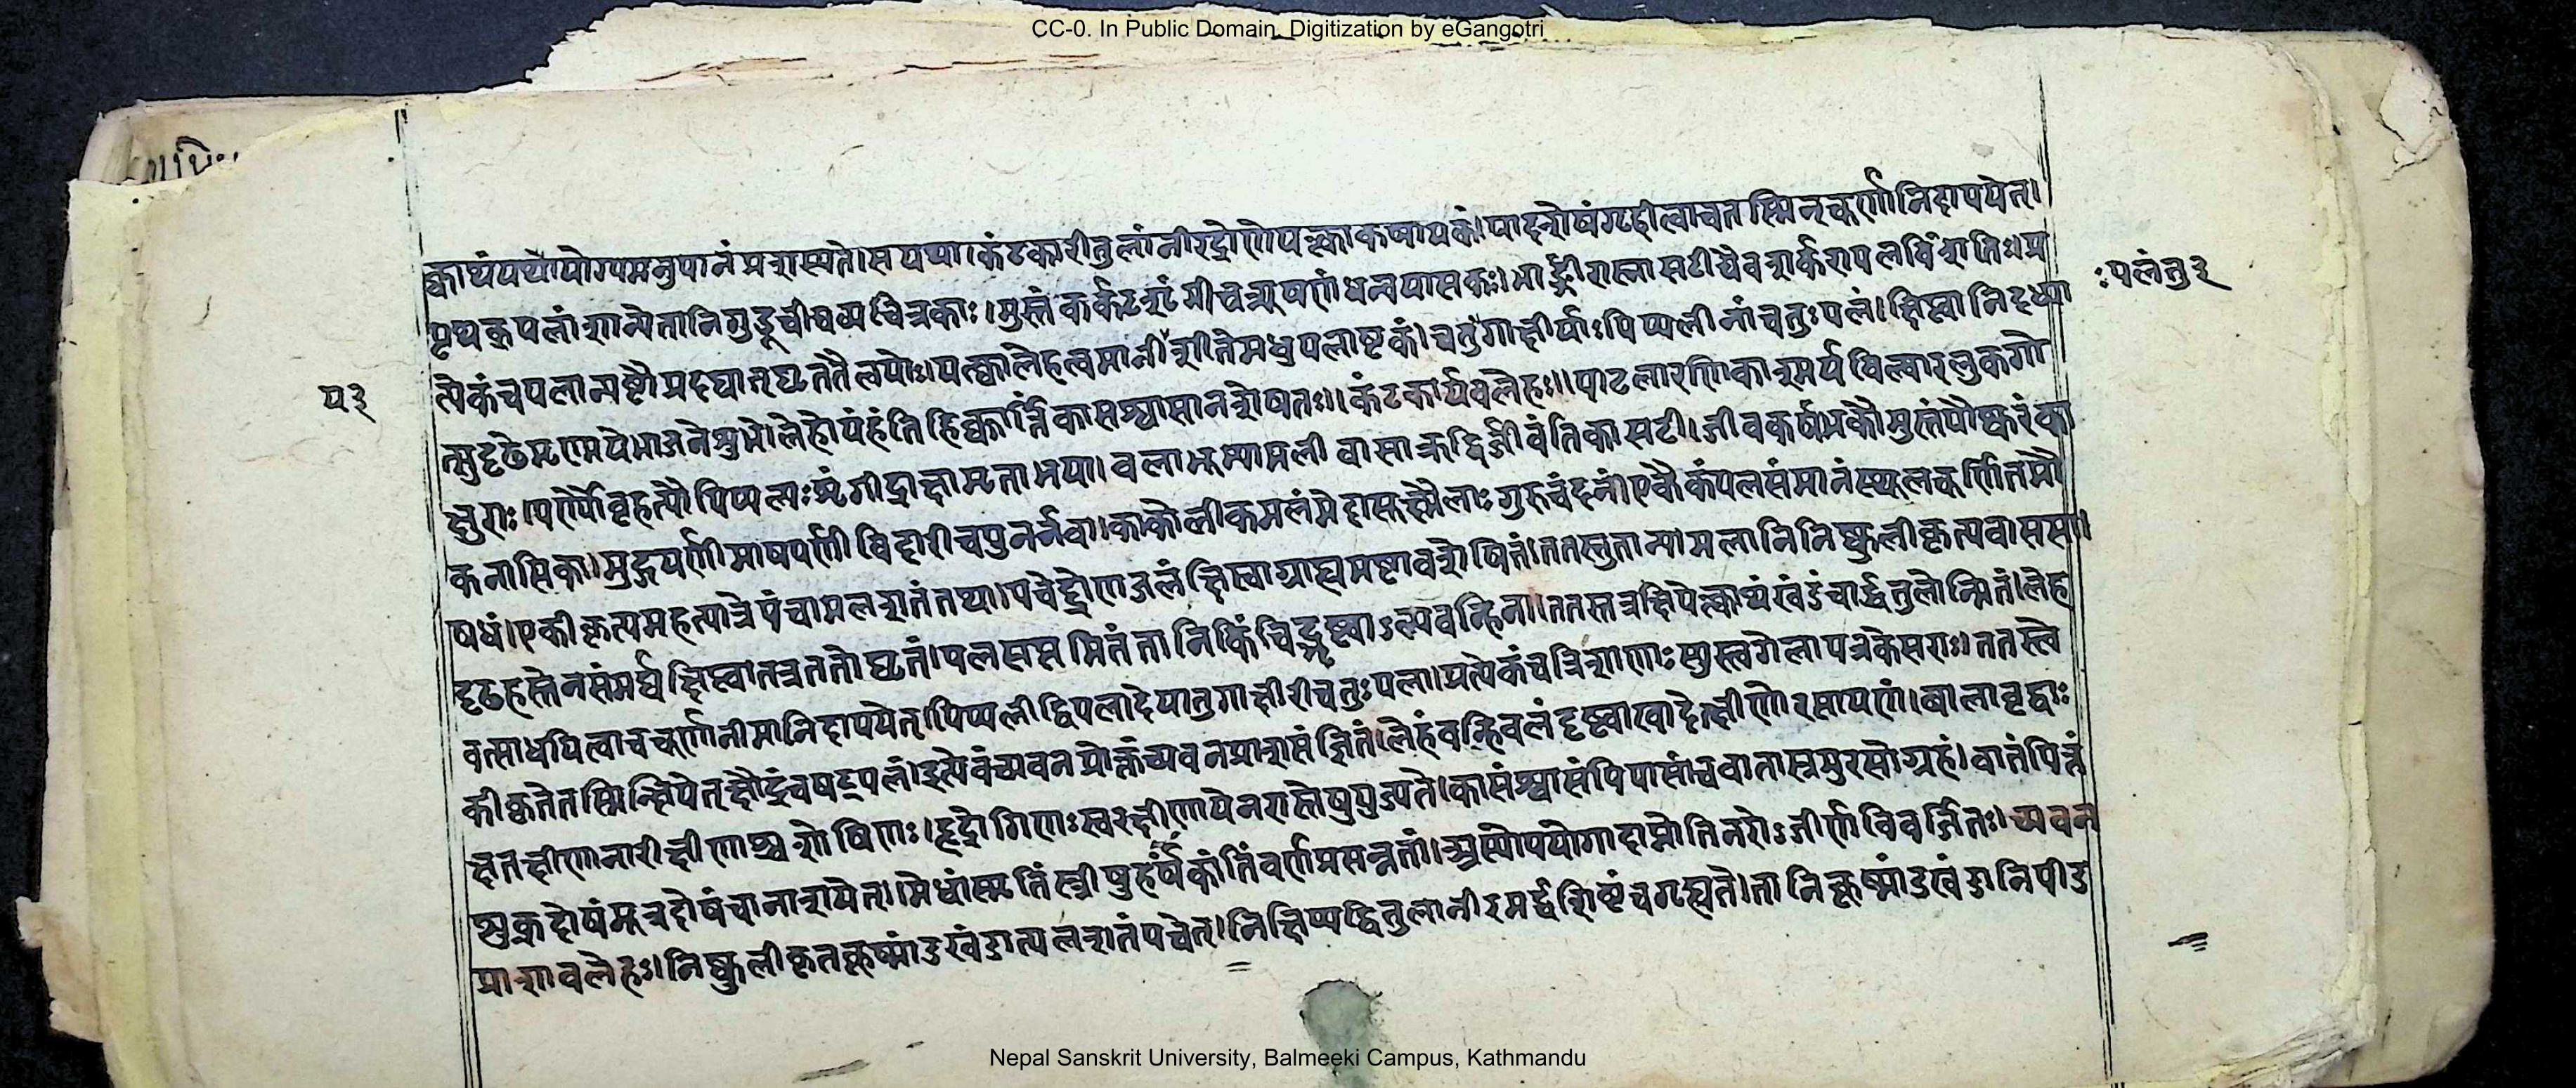 CC-0. In Public Domain. Digitization by eGangotri
क्वाथंपथ्यंयोग्यमनुपानंप्रशस्यते।सयथा।कंटकारीतुलांनीरद्रोणेपक्त्वाकषायकं।पादशेषंगृहीत्वाचतस्मिन्चूर्णानिदापयेत्।
पृथक्पलांशान्येतानिगुडूचीचव्यचित्रकाः।मुस्तंकर्कटशृंगीचत्र्यूषणंधन्वयासकः।भार्ङ्गीरास्नासटीचैवशर्करापलविंशतिः।प्र
:पलंतु३
त्येकंचपलान्यष्टौप्रदद्यात्घृततैलयोः।पक्त्वालेहत्वमानीयशीतेमधुपलाष्टकं।चतुर्गाक्षीर्याःपिप्पलीनांचतुःपलं।क्षिप्त्वानिदध्या
५३
त्सुदृढेमृण्मयेभाजनेशुभे।लेहोयंहंतिहिक्कार्त्तिकासश्वासानशेषतः।।कंटकार्यवलेहः।।पाटलारणिकाश्मर्यबिल्वारलुकगो
क्षुराः।पर्ण्यौबृहत्यौपिप्पल्यःशृंगीद्राक्षामृताभया।बलाभूम्यामलीवासाऋद्धिर्जीवंतिकासटी।जीवकर्षभकौमुस्तंपौष्करंका
कनासिका।मुद्गपर्णीमाषपर्णीविदारीचपुनर्नवा।काकोलीकमलंमेदासूक्ष्मैलागुरुचंदनं।एकैकंपलसंमानंस्थूलचूर्णितमौ
षधं।एकीकृत्यमहत्पात्रेपंचामलशतंतथा।पचेद्द्रोणजलंक्षिप्त्वाग्राह्यमष्टावशेषितं।ततस्तुतान्यामलानिनिष्कुलीकृत्यवाससा।
दृढहस्तेनसंमर्द्यक्षिप्त्वातत्रततोघृतं।पलसप्तमितंतानिकिंचिद्भृष्ट्वाऽल्पवन्हिना।ततस्तत्रक्षिपेत्क्वाथंखंडंचार्द्धतुलोन्मितं।लेह
वत्साधयित्वाचचूर्णानीमानिदापयेत्।पिप्पलीद्विपलादेयातुगाक्षीरीचतुःपला।प्रत्येकंचत्रिशाणाःस्युस्त्वगेलापत्रकेसराः।ततस्त्वे
कीकृतेतस्मिन्क्षिपेत्क्षौद्रंचषट्पलं।इत्येवंच्यवनप्रोक्तंच्यवनप्राशसंज्ञितं।लेहंवन्हिबलंदृष्ट्वाखादेत्क्षीणेरसायणं।बालावृद्धाः
क्षतक्षीणानारीक्षीणाश्चशोषिणः।हृद्रोगिणःस्वरक्षीणायेनरास्तेषुयुज्यते।कासंश्वासंपिपासांचवातास्रमुरसोग्रहं।वातंपित्तं
शुक्रदोषंमूत्रदोषंचानाशयेत्।मेधांस्मृतिंस्त्रीषुहर्षंकांतिंवर्णप्रसन्नतां।अस्योपयोगादाप्नोतिनरोऽजीर्णविवर्जितः।च्यवन
प्राशावलेहः।निष्कुलीकृतकूष्मांडखंडात्पलशतंपचेत्।निक्षिप्यद्वितुलानीरमर्द्धशिष्टंचगृह्यते।तानिकूष्मांडखंडानिपीड
Nepal Sanskrit University, Balmeeki Campus, Kathmandu